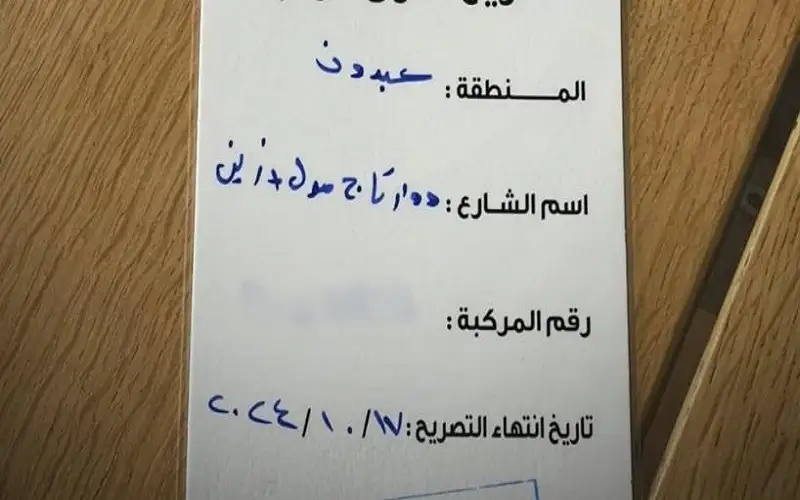 المنطقة: عبدون
اسم الشارع: دوار تاج مول + زين
رقم المركبة:
تاريخ انتهاء التصريح: ١٧/١٠/٢٠٢٤